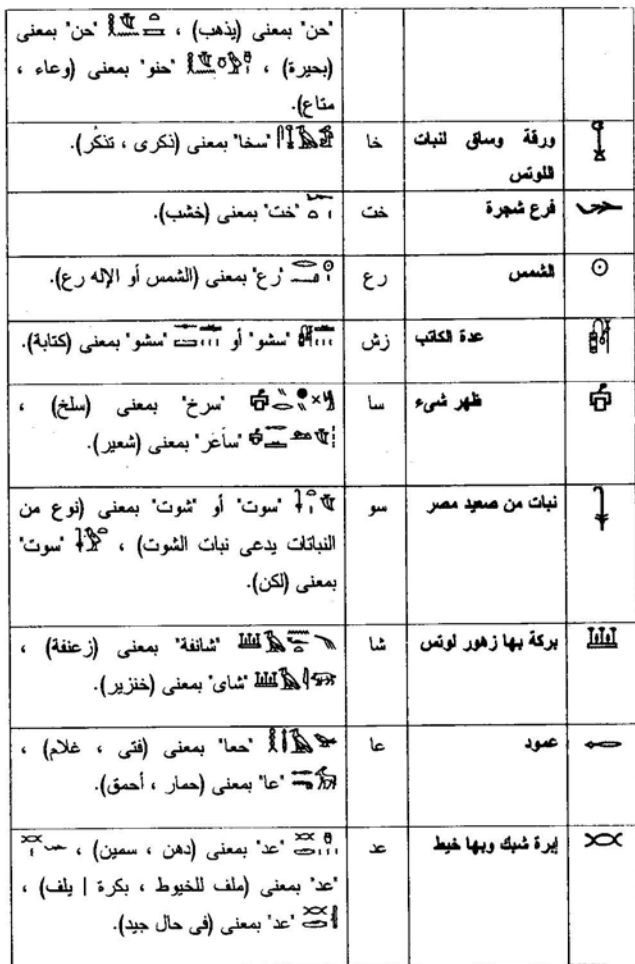 "حن" بمعنى (يذهب) ، "حن" بمعنى
(بحيرة) ، "حنو" بمعنى (وعاء ،
متاع).
ورقة وساق لنبات اللوتس خا "سخا" بمعنى (ذكرى ، تذكُر).
فرع شجرة خت "خت" بمعنى (خشب).
الشمس رع "رع" بمعنى (الشمس أو الإله رع).
عدة الكاتب زش "سشو" أو "سشو" بمعنى (كتابة).
ظهر شىء سا "سرخ" بمعنى (سلخ) ،
"ساعر" بمعنى (شعير).
نبات من صعيد مصر سو "سوت" أو "شوت" بمعنى (نوع من
النباتات يدعى نبات الشوت) ، "سوت"
بمعنى (لكن).
بركة بها زهور لوتس شا "شانفة" بمعنى (زعنفة) ،
"شاى" بمعنى (خنزير).
عمود عا "حعا" بمعنى (فتى ، غلام) ،
"عا" بمعنى (حمار ، أحمق).
إبرة شبك وبها خيط عد "عد" بمعنى (دهن ، سمين) ،
"عد" بمعنى (ملف للخيوط ، بكرة | يلف) ،
"عد" بمعنى (فى حال جيد).